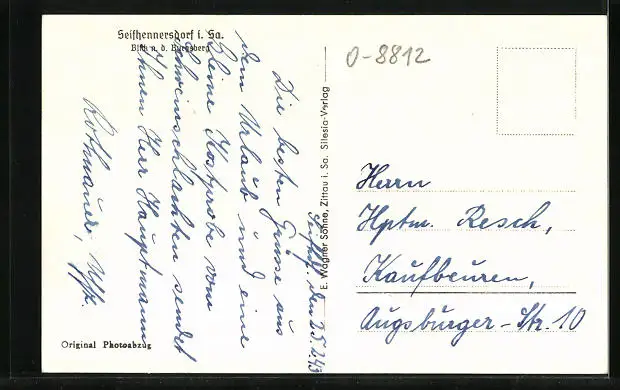 Seifhennersdorf i. Sa.
Blick n. d. Burgsberg
0-8812
Seifh. den 25.2.43
Die besten Grüsse aus
dem Urlaub und eine
kleine Kostprobe vom
Schweinschlachten sendet
Ihnen Herr Hauptmann
Rothmauer, Uffz.
E. Wagner Söhne, Zittau i. Sa. Silesia-Verlag
Herrn
Hptm. Resch,
Kaufbeuren,
Augsburger-Str. 10
Original Photoabzug